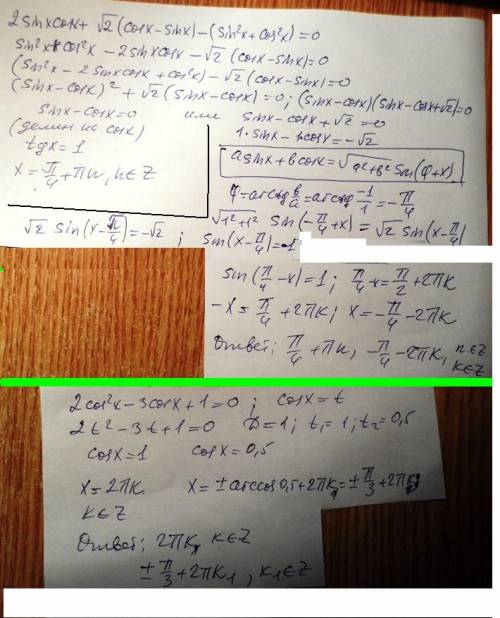 2 sinx cosx + √2 (cosx - sinx) - (sin²x + cos²x) = 0
sin²x + cos²x - 2 sinx cosx - √2 (cosx - sinx) = 0
(sin²x - 2 sinx cosx + cos²x) - √2 (cosx - sinx) = 0
(sinx - cosx)² + √2 (sinx - cosx) = 0; (sinx - cosx)(sinx - cosx + √2) = 0
sinx - cosx = 0 или sinx - cosx + √2 = 0
(делим на cosx)
tgx = 1
x = π/4 + πn, n∈Z
1·sinx - 1·cosx = -√2
a sinx + b cosx = √(a²+b²) sin(φ+x)
φ = arctg b/a = arctg -1/1 = -π/4
√(1²+1²) sin(-π/4 + x) = √2 sin(x - π/4)
√2 sin(x - π/4) = -√2 ; sin(x - π/4) = -1
sin(π/4 - x) = 1; π/4 - x = π/2 + 2πk
-x = π/4 + 2πk; x = -π/4 - 2πk
Ответ: π/4 + πn, -π/4 - 2πk, n∈Z k∈Z
2cos²x - 3cosx + 1 = 0 ; cosx = t
2t² - 3t + 1 = 0 D = 1; t₁ = 1; t₂ = 0,5
cosx = 1 cosx = 0,5
x = 2πk x = ± arccos 0,5 + 2πk₁ = ± π/3 + 2πk₁
k∈Z
Ответ: 2πk, k∈Z
± π/3 + 2πk₁, k₁∈Z